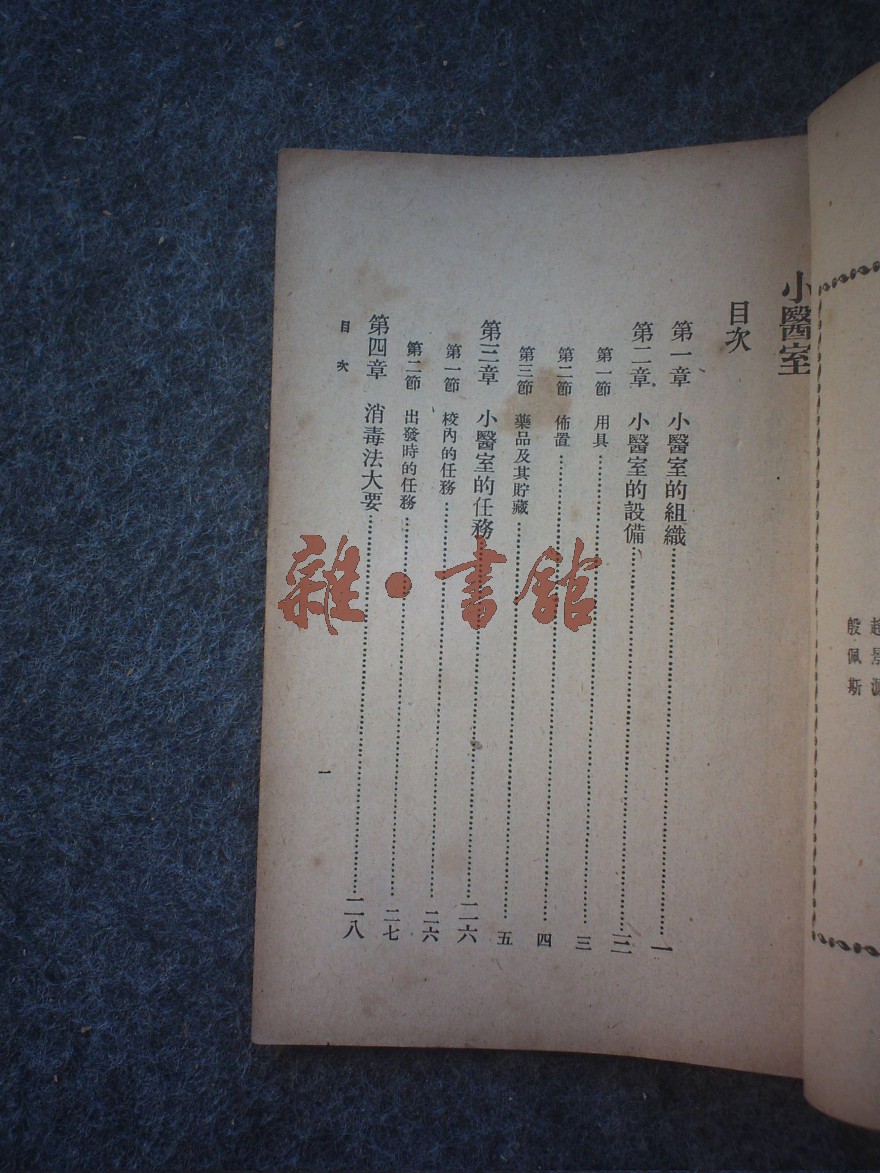 小醫室
目次
第一章　小醫室的組織……一
第二章　小醫室的設備……三
第一節　用具……三
第二節　佈置……四
第三節　藥品及其貯藏……五
第三章　小醫室的任務……二六
第一節　校內的任務……二六
第二節　出發時的任務……二七
第四章　消毒法大要……二八
目次
一
殷佩斯
雜·書館